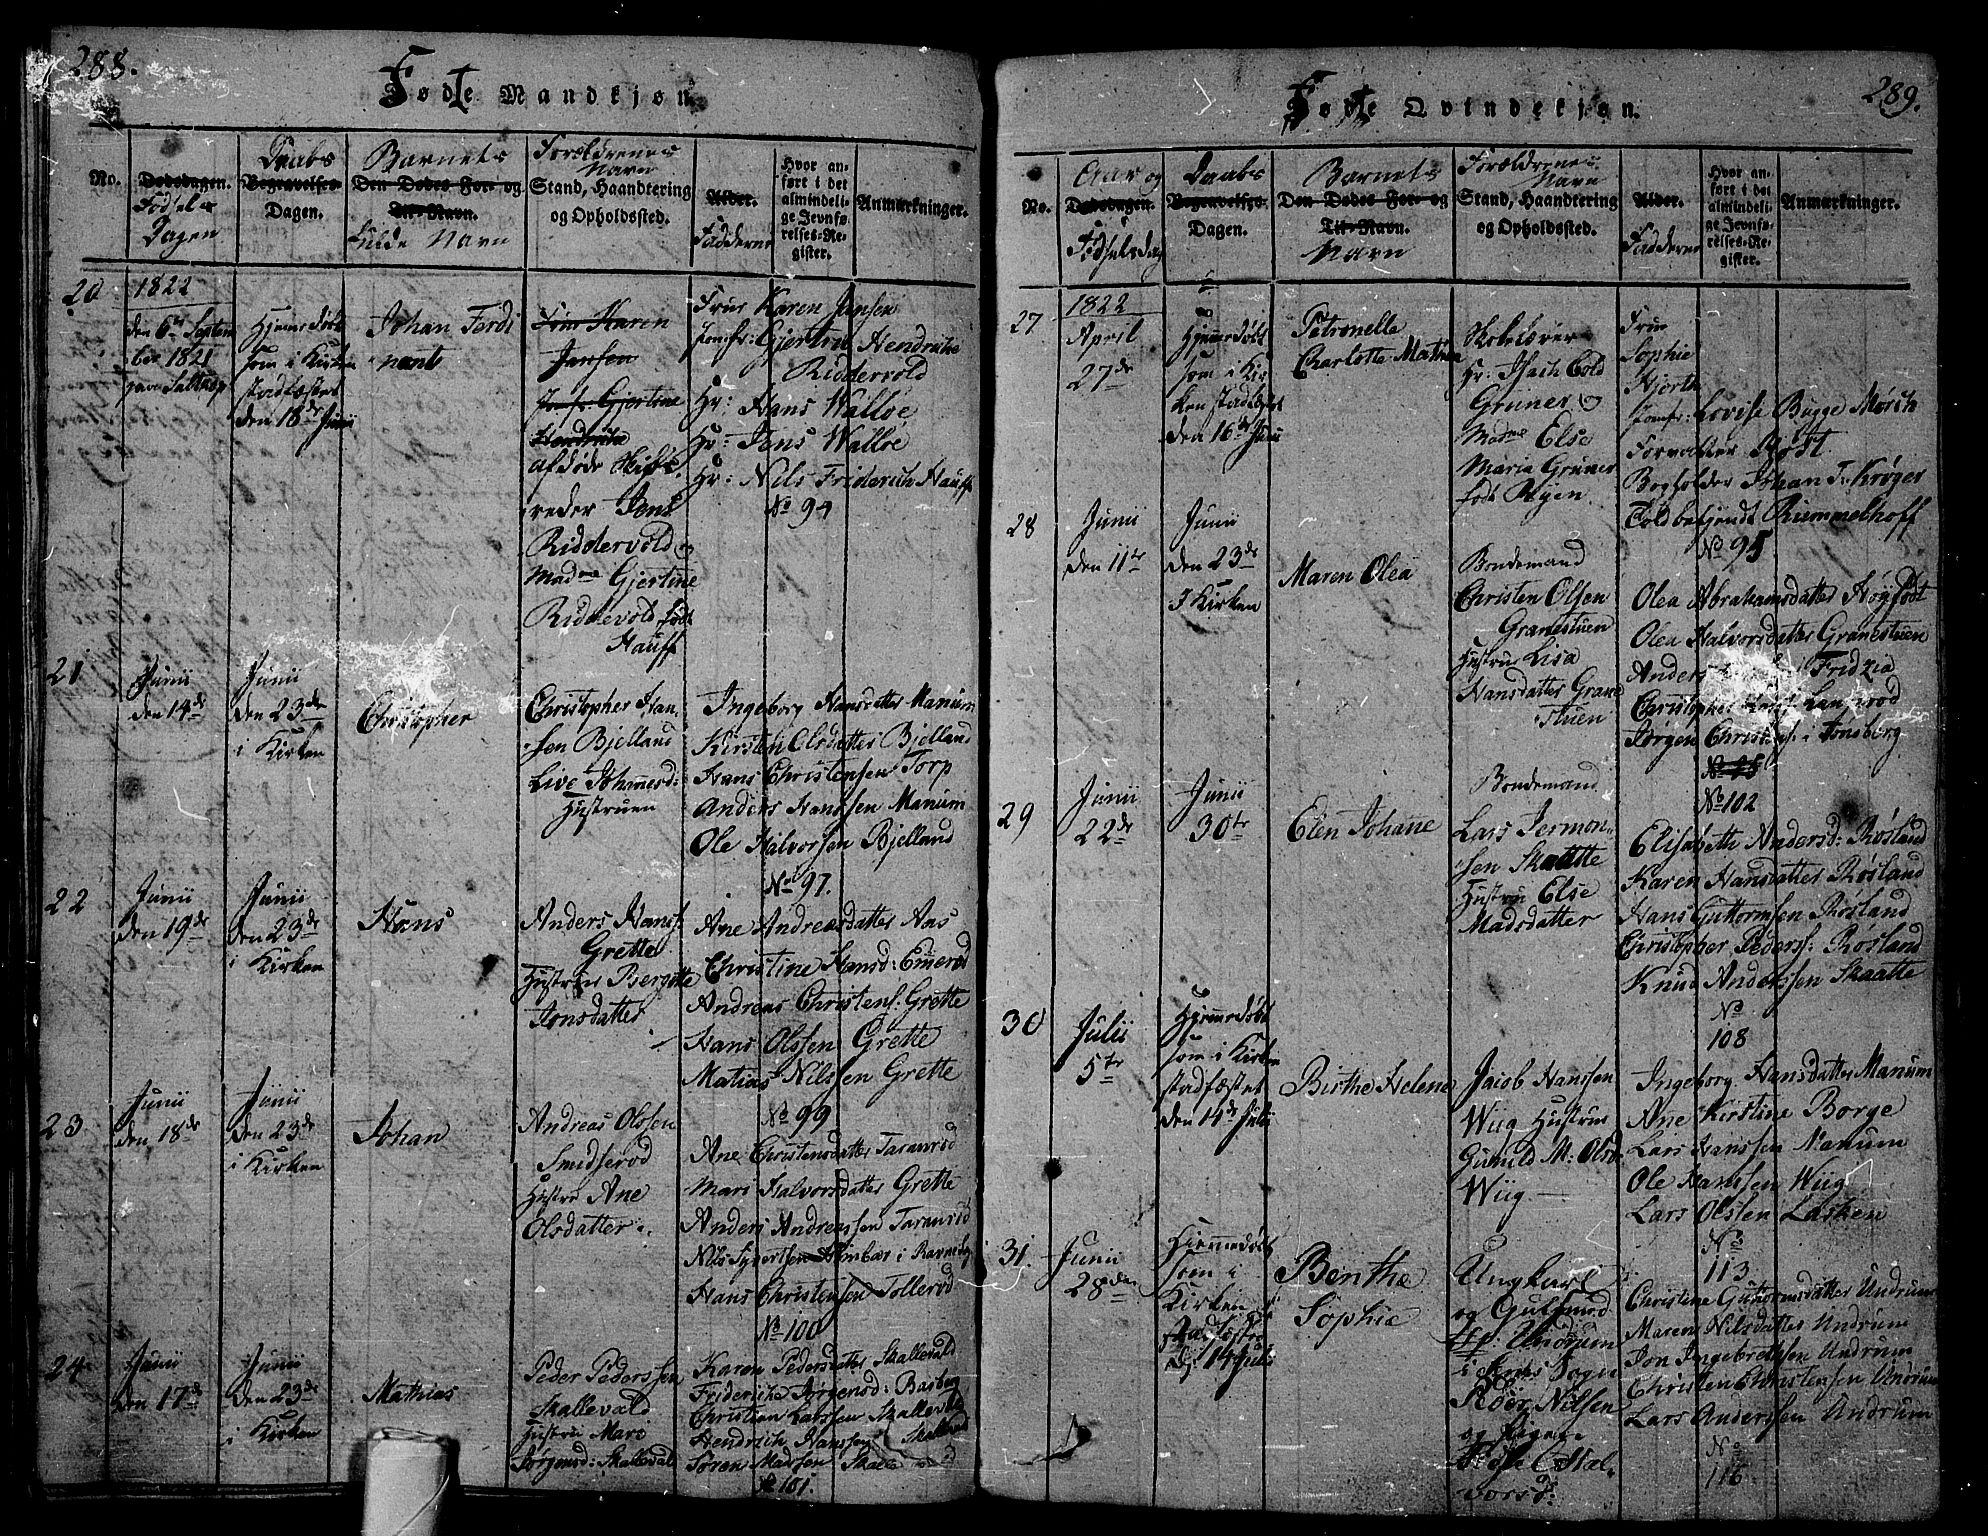 288.
Fødte Mandkjøn.
No.
Dødsdagen.
Fødsels
Dagen
Daabs
Begravelses-
Dagen.
Barnets
Den Dødes For- og
Til-Navn.
fulde Navn
Forældrenes
Navn
Stand, Haandtering
og Opholdssted.
Alder.
Fadderne
Hvor an-
ført i det
almindeli-
ge Jevnfø-
relses-Re-
gister.
Anmærkninger.
20
1822
den 6te Septem
ber 1821
Hjemmedøbt
som i Kirken
stadfæstet
den 18de Junii
Johan Ferdi
nant
Frue Karen
Jansen
Jomfr: Gjertine
Hendrikke
afdøde Skibs
reder Jens
Riddervold og
Madme Gjertine
Riddervold født
Hauff
Frue Karen Jansen
Jomfr: Gjertine Hendrikke
Riddervold
Hr: Hans Walløe
Hr: Jens Walløe
Hr: Nils Friderich Hauff
No 94
21
Junii
den 14de
Junii
den 23de
i Kirken
Christopher
Christopher Han-
sen Bjelland
Live Johannesd:
Hustruen
Ingeborg Hansdatter Manum
Kirsten Olsdatter Bjelland
Hans Christensen Torp
Anders Hanssen Manum
Ole Halvorsen Bjelland
No 97.
22
Junii
den 19de
Junii
den 23de
i Kirken
Hans
Anders Hanss:
Grette
Hustrue Bergitte
Jonsdatter
Ane Andreasdatter Aas
Christine Hansd: Emerød
Andreas Christens. Grette
Hans Olssen Grette
Matias Nilssen Grette
No 99
23
Junii
den 18de
Junii
den 23de
i Kirken
Johan
Andreas Olssen
Smidserød
Hustru Ane
Olsdatter
Ane Christensdatter Taranrød
Mari Halvorsdatter Grette
Anders Andreassen Taranrød
Nils Sygertsen i Ravnedag
Hans Christensen Tollerød
No 100
24
Junii
den 17de
Junii
den 23de
i Kirken
Mathias
Peder Pederssen
Skallevald
Hustru Mari
Jørgensd: Skallevald
Karen Pedersdatter Skallevald
Friderikke Jørgensd: Basberg
Christian Larssen Skallevald
Hendrich Hanssen Skallevald
Søren Madsen Skalle
No 101.
289.
Fødte Qvindekjøn.
No.
Aar og
Dødsdagen.
Fødselsdag
Daabs
Begravelses-
Dagen.
Barnets
Den Dødes For- og
Til-Navn.
Navn
Forældrenes
Navn
Stand, Haandtering
og Opholdssted.
Alder.
Fadderne
Hvor an-
ført i det
almindeli-
ge Jevnfø-
relses-Re-
gister.
Anmærkninger.
27
1822
April
27de
Hjemmedøbt
som i Kir
ken stadfæstet
den 16de Junii
Petronelle
Charlotte Mathea
Skolelærer
Hr: Isach Cold
Gruner og
Madme Else
Maria Gruner
født Nyen
Frue
Sophie
Hjorth
Jomfr: Lovise Bugge Mørch
Forvalter Røst
Bogholder Johan F. Krøger
Toldbetjendt Rummelhoff
No 95
28
Junii
den 11te
Junii
den 23de
I Kirken
Maren Olea
Bondemand
Christen Olsen
Granestuen
Hustru Lisa
Hansdatter Grane
stuen
Olea Abrahamsdatter Høyfødt
Olea Halvorsdatter Granestuen
Anders Fridzia
Christopher Langerød
Jørgen Christens. i Tønsberg
No 95
No 102
29
Junii
22de
Junii
30te
Elen Johane
Bondemand
Lars Jermon-
sen Skaatte
Hustru Else
Madsdatter
Elisabeth Andersd: Røsland
Karen Hansdatter Røsland
Hans Guttormsen Røsland
Christopher Peders: Røsland
Knud Anderssen Skaatte
No
108
30
Julii
5te
Hjemmedøbt
som i Kirken
stadfæstet
den 14de Julii
Birthe Helene
Jacob Hanssen
Wiig Hustrue
Gunild M: Olsd.
Wiig
Ingeborg Hansdatter Manum
Ane Kirstine Borge
Lars Hanssen Manum
Ole Hanssen Wiig
Lars Olsten Lasken
No
113
31.
Junii
28den
Hjemmedøbt
som i
Kirken
stadfæstet
d: 14 Julii
Benthe
Sophie
Ungkarl
og Gulsmed
Undrum
i Sems Sogn
Roer Nilsen
og Pigen
Else Hal-
vorsd:
Christine Guttormsdatter Undrum
Maren Nilsdatter Undrum
Jon Ingebrethsen Undrum
Christen Christensen Undrum
Lars Anderssen Undrum
No
116